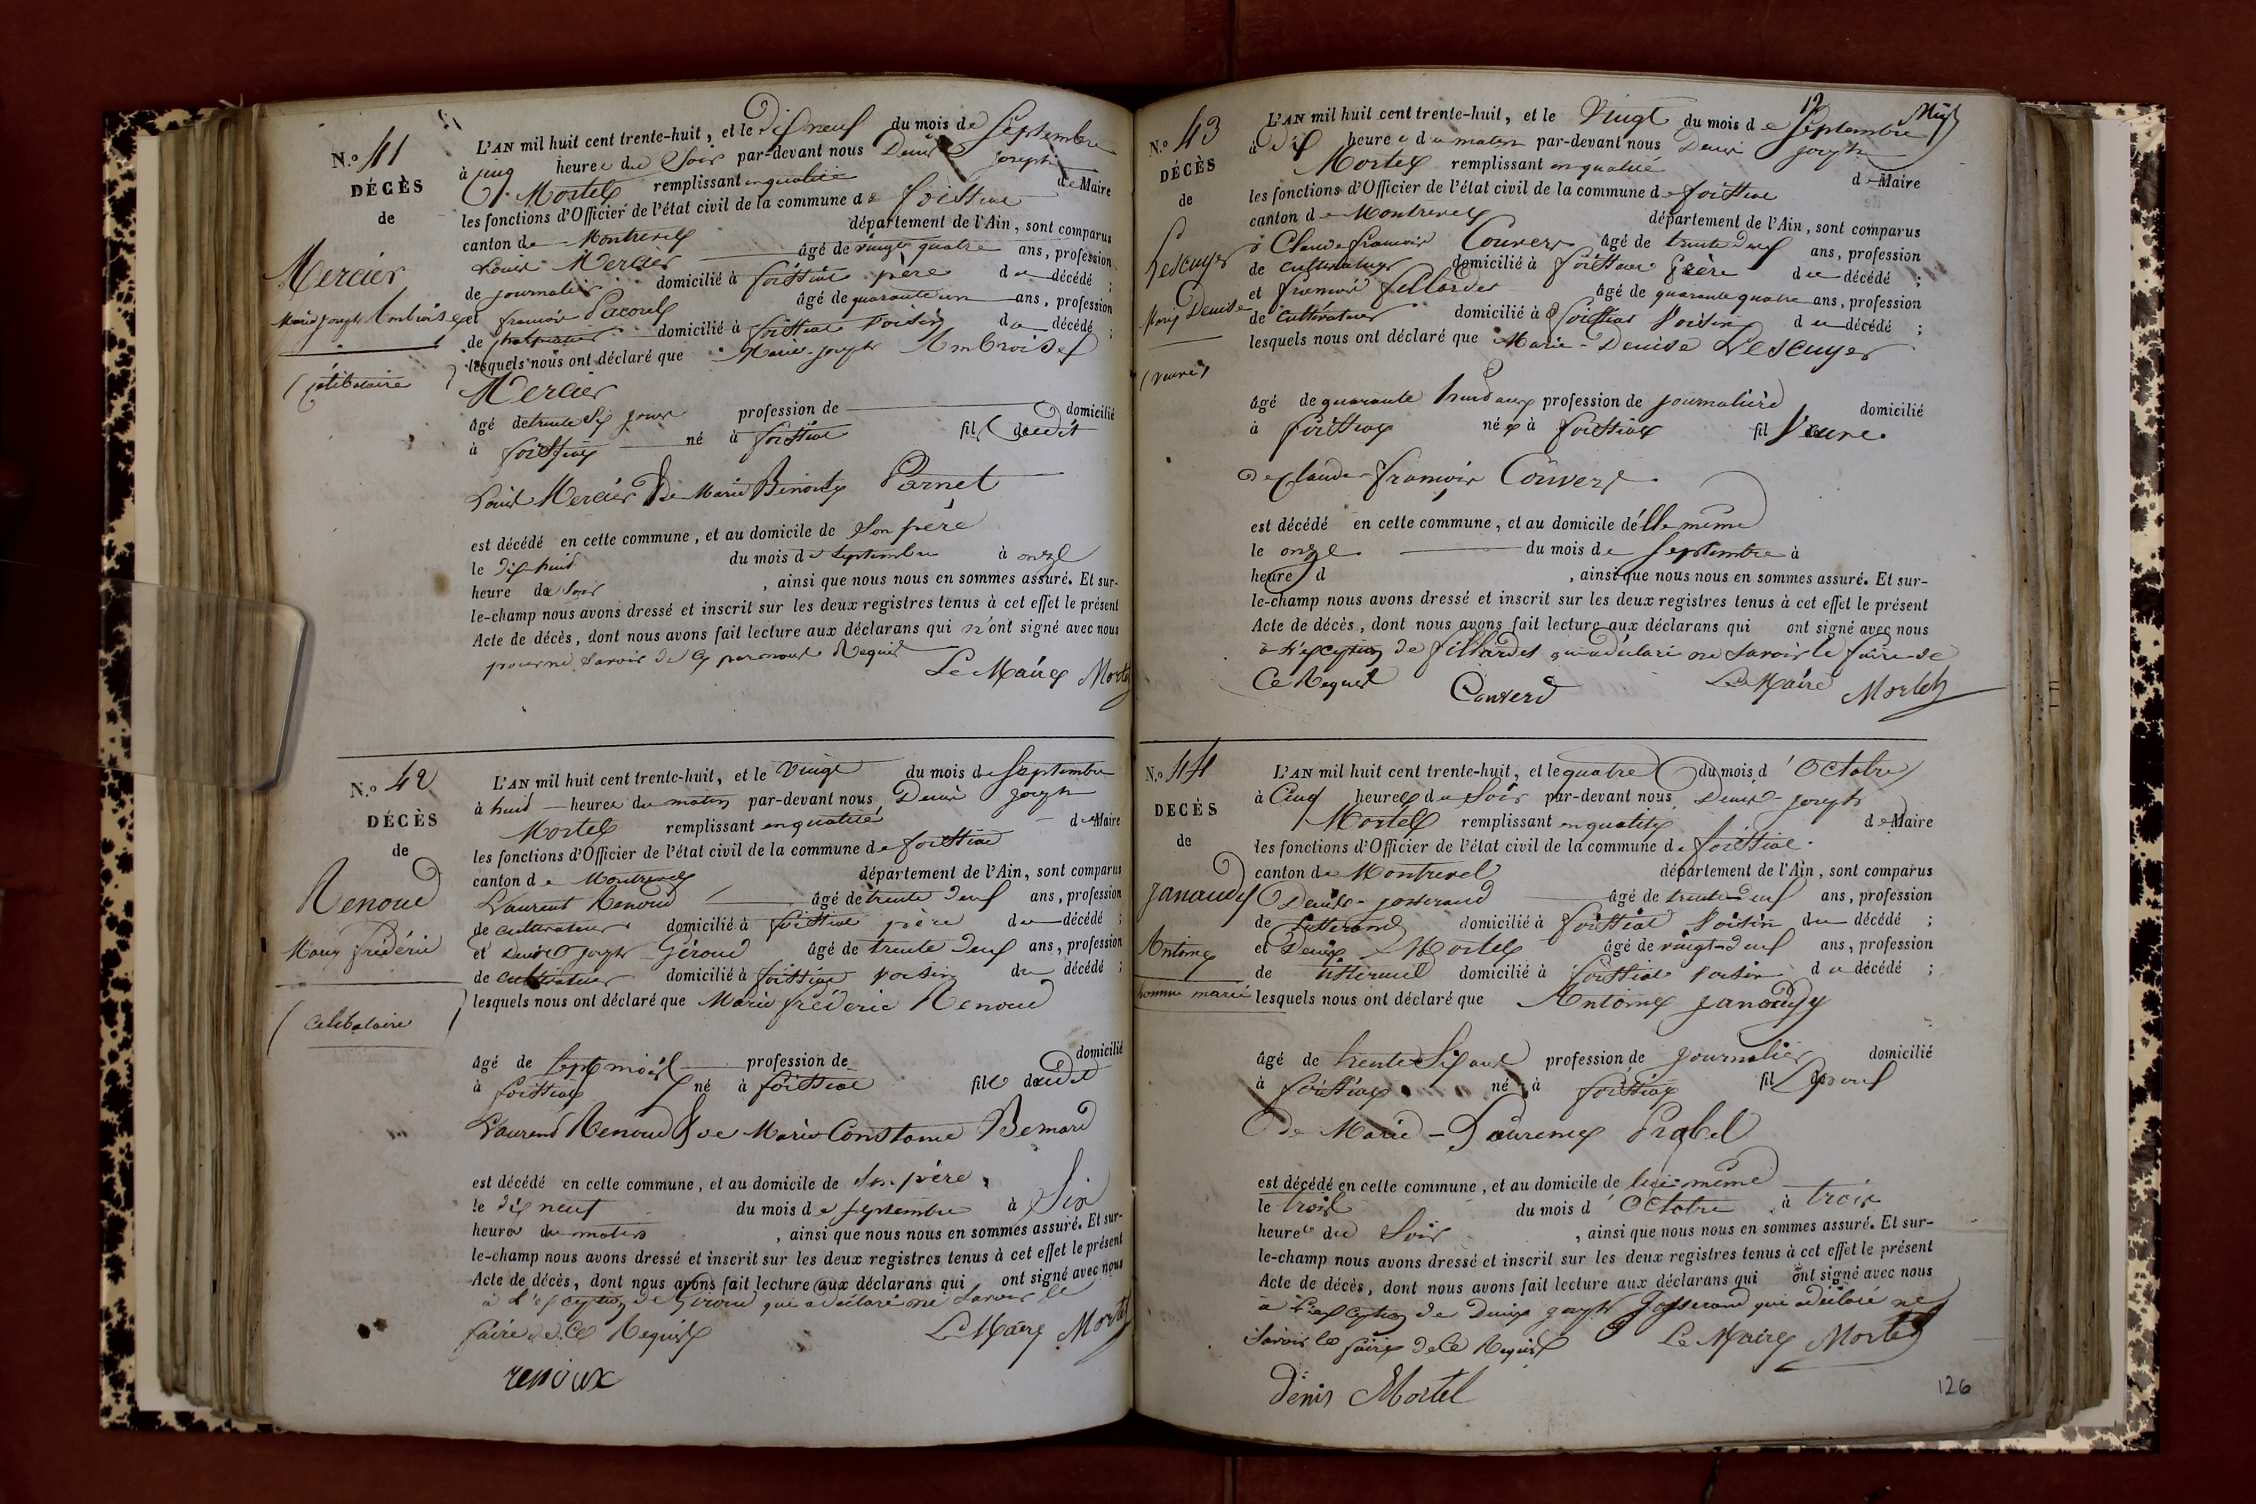 N.o 41
DÉCÈS
de
Mercier
Marie joseph Ambroise
(célibataire)
L'AN mil huit cent trente-huit, et le dix neuf du mois de Septembre
à cinq heures du Soir par-devant nous Denis joseph
Mortel remplissant en qualité de Maire
les fonctions d'Officier de l'état civil de la commune de foissiat
canton de Montrevel département de l'Ain, sont comparus
Louis Mercier âgé de vingt quatre ans, profession
de journalier domicilié à foissiat père du décédé ;
et françois Pacoret âgé de quarante un ans, profession
de domicilié à foissiat voisin du décédé ;
lesquels nous ont déclaré que Marie-joseph Ambroise
Mercier
âgé de trente six jours profession de domicilié
à foissiat né à foissiat fils dudit
Louis Mercier & de Marie Benoite Parnet
est décédé en cette commune, et au domicile de Son père
le dix huit du mois de Septembre à onze
heure du Soir , ainsi que nous nous en sommes assuré. Et sur-
le-champ nous avons dressé et inscrit sur les deux registres tenus à cet effet le présent
Acte de décès, dont nous avons fait lecture aux déclarans qui n'ont signé avec nous
pour ne Savoir de ce par nous Requis
Le Maire Mortel
N.o 42
DÉCÈS
de
Renoud
Marie frédéric
(célibataire)
L'AN mil huit cent trente-huit, et le Vingt du mois de Septembre
à huit heures du matin par-devant nous Denis joseph
Mortel remplissant en qualité de Maire
les fonctions d'Officier de l'état civil de la commune de foissiat
canton de Montrevel département de l'Ain, sont comparus
Laurent Renoud âgé de trente deux ans, profession
de cultivateur domicilié à foissiat père du décédé ;
et Denis joseph Géroud âgé de trente deux ans, profession
de cultivateur domicilié à foissiat voisin du décédé ;
lesquels nous ont déclaré que Marie frédéric Renoud
âgé de Sept mois profession de domicilié
à foissiat né à foissiat fils dudit
Laurent Renoud & de Marie Constance Bernard
est décédé en cette commune, et au domicile de Son père
le dix neuf du mois de Septembre à Six
heures du matin , ainsi que nous nous en sommes assuré. Et sur-
le-champ nous avons dressé et inscrit sur les deux registres tenus à cet effet le présent
Acte de décès, dont nous avons fait lecture aux déclarans qui ont signé avec nous
à l'exception de Géroud qui a déclaré ne Savoir le
faire de ce Requis Le Maire Mortel
renoux
12
N.o 43
DÉCÈS
de
Lescuyer
Marie Denise
(veuve)
L'AN mil huit cent trente-huit, et le Vingt du mois de Septembre
à Dix heures du matin par-devant nous Denis joseph
Mortel remplissant en qualité de Maire
les fonctions d'Officier de l'état civil de la commune de foissiat
canton de Montrevel département de l'Ain, sont comparus
Claude françois Convert âgé de trente deux ans, profession
de cultivateur domicilié à foissiat frère du décédé ;
et françois fillardet âgé de quarante quatre ans, profession
de cultivateur domicilié à foissiat voisin du décédé ;
lesquels nous ont déclaré que Marie-Denise Lescuyer
âgé de quarante huit ans profession de journalière domicilié
à foissiat née à foissiat fil Veuve
de Claude françois Convert
est décédé en cette commune, et au domicile d'elle même
le onze du mois de Septembre à
heure d , ainsi que nous nous en sommes assuré. Et sur-
le-champ nous avons dressé et inscrit sur les deux registres tenus à cet effet le présent
Acte de décès, dont nous avons fait lecture aux déclarans qui ont signé avec nous
à l'exception de fillardet qui a déclaré ne Savoir le faire de
Ce Requis Convert Le Maire Mortel
N.o 44
DÉCÈS
de
Janaudy
Antoine
homme marié
L'AN mil huit cent trente-huit, et le quatre du mois d'Octobre
à Cinq heures du Soir par-devant nous Denis-joseph
Mortel remplissant en qualité de Maire
les fonctions d'Officier de l'état civil de la commune de foissiat
canton de Montrevel département de l'Ain, sont comparus
Denis-josserand âgé de trente deux ans, profession
de tisserand domicilié à foissiat voisin du décédé ;
et Denis Mortel âgé de vingt deux ans, profession
de domicilié à foissiat voisin du décédé ;
lesquels nous ont déclaré que Antoine janaudy
âgé de trente Six ans profession de journalier domicilié
à foissiat né à foissiat fil Epoux
de Marie-Laurence Prabel
est décédé en cette commune, et au domicile de lui-même
le trois du mois d'Octobre à trois
heures du Soir , ainsi que nous nous en sommes assuré. Et sur-
le-champ nous avons dressé et inscrit sur les deux registres tenus à cet effet le présent
Acte de décès, dont nous avons fait lecture aux déclarans qui ont signé avec nous
à l'exception de Denis joseph Josserand qui a déclaré ne
Savoir le faire de ce Requis Le Maire Mortel
denis Mortel
126